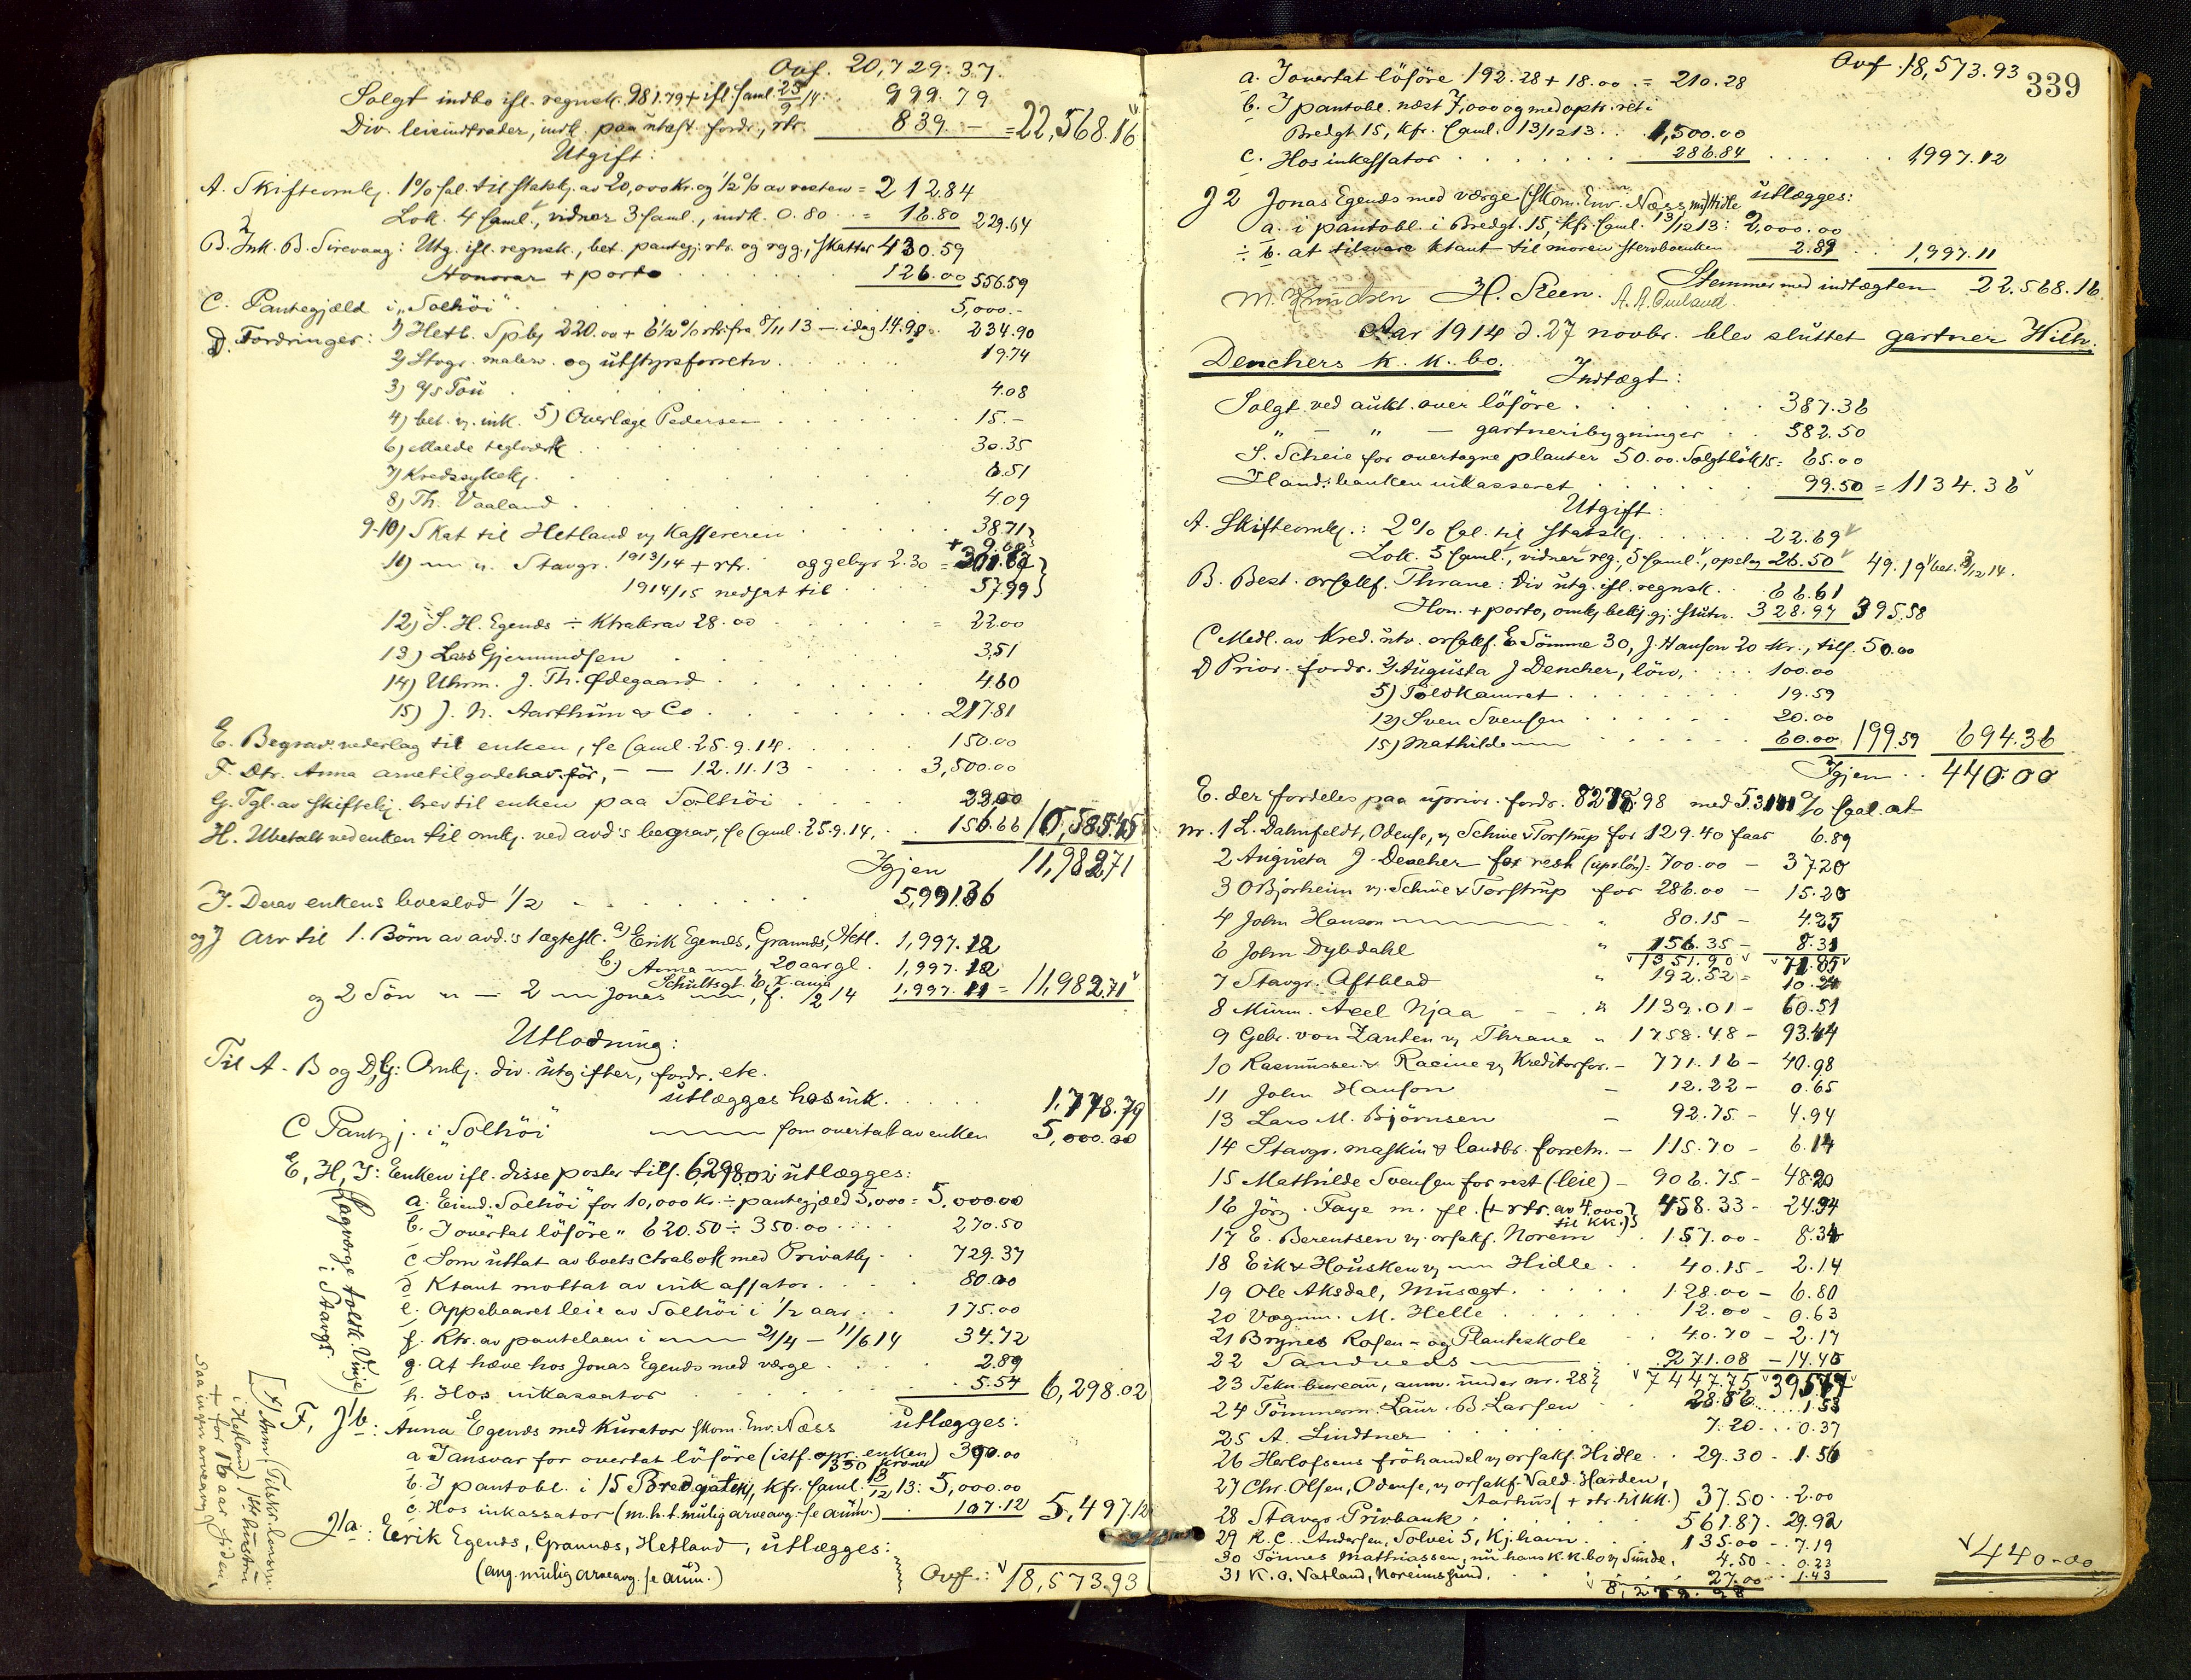 Ovf. 20,729.37.
Solgt indbo ifl. regnsk. 981.79 + ifl. saml. 25/9 14: 999.79
Div. leieindtægter, indk. paa utest. fordr., rtr. 839.— = 22,568.16
Utgift:
A. Skifteomk. 1% sal. til statsk. av 20,000 Kr. og 1/2% av resten = 212.84
Lok. 4 saml., vidner 3 saml., indk. 0.80 = 16.80 229.64
B. Ink. B. Sirevaag: Utg. ifl. regnsk., bet. pantegj. rtr. og rgg., skatter 430.59
Honorar + porto 126.00 556.59
C. Pantegjæld i "Solhöi" 5,000.-
D. Fordringer: 1) Hetl. Spbk 220.00 + 6 1/2% rtr. fra 8/11 13 — idag 14.90 = 234.90
2) Stvgr. maler. og utstyrsforretn. 19.74
3) A/S Tou 4.08
4) bet. v. ink. 5) Overlæge Pedersen 15.-
6) Malde teglverk 30.35
7) Kredssykek. 6.51
8) Th. Vaaland 4.09
9-10) Skat til Hetland v. Kassereren 38.71
+ 9.00
11) — " Stavgr. 1913/14 + rtr. og gebyr 2.30 = 301.62
1914/15 nedsat til 57.99
12) S. H. Egenes ÷ Ktrakrav 28.00 = 22.00
13) Lars Gjermundsen 3.51
14) Uhrm. J. Th. Ødegaard 4.60
15) J. N. Aarthun & Co 217.81
E. Begrav. vederlag til enken, se saml. 25.9.14. 150.00
F. Dtr. Anna arvetilgodehav. för, - — 12.11.13 3,500.00
G. Tgl. av skiftebrev til enken paa Solhöi 22.00
H. Utbetalt ved enken til omk. ved avd's begrav., se saml. 25.9.14, 156.66 10,585.45
Igjen 11,982.71
I. Derav enkens boeslod 1/2 5,991.36
og J Arv til 1. Börn av avd.s 1 ægtesk. a) Erik Egenes, Grannes, Hetl. 1,997.12
b) Anna — " 20 aar gl. 1,997.12
Schultsgt. 6,
og 2 Sön " — 2 — Jonas — , f. 1,997.11 = 11,982.71
Utlodning:
Til A - B og D, G: Omk. div. utgifter, fordr. etc.
utlægges hos ink. 1,778.79
C Pantgj. i "Solhöi" — som overtat av enken 5,000.00
E, H, I: Enken ifl. disse poster tils. 6,298.02 utlægges:
(Lagværge toldk. Vinje)
i Stavgr.
a. Eiend. Solhöi for 10,000 Kr. ÷ pantegjæld 5,000 = 5,000.00
b. I overtat lösöre " 620.50 ÷ 350.00 270.50
c Som uttat av boets ctrabok med Privatbk. 729.37
d Ktant mottat av inkassator 80.00
e. Oppebaaret leie av Solhöi i 1/2 aar 175.00
f. Rtr. av pantelaan i — 21/4 — 11/6 14 34.72
g. At hæve hos Jonas Egenes med værge 2.89
h. Hos inkassator 5.54 6,298.02
F, J1b: Anna Egenes med Kurator skom. Enr. Næss utlægges:
a I ansvar for overtat lösöre (istf. opr. enken) 350 kroner 390.00
b. I pantobl. i 15 Bredgaten, kfr. saml. 13/12 13: 5,000.00
c. Hos inkassator (m.h.t. mulig arveavg. se anm.) 107.12 5,497.12
J1a: Eerik Egenes, Grannes, Hetland, utlægges:
(ang. mulig arveavg. se anm.)
Ovf.: 18,573.93
339
Ovf. 18,573.93
a. I overtat lösöre 192.28 + 18.00 = 210.28
b. I pantobl. næst 7,000 og med optr. ret i
Bredgt 15, kfr. saml. 13/12 13 1,500.00
c. Hos inkassator 286.84 1997.12
J 2 Jonas Egenes med værge (skom. Enr. Næss utlægges:
a. i pantobl. i Bredgt. 15, kfr. saml. 13/12 13: 2,000.00
÷ b. at tilsvare ktant til moren stervboenken 2.89 1,997.11
Stemmer med indtægten 22.568.16
M. Knudsen H. Steen. A. A. Aulaud.
Aar 1914 d. 27 novbr. blev sluttet gartner Wilh.
Denchers k. k. bo.
Indtægt:
Solgt ved aukt. over lösöre 387.36
" — " — gartneribygninger 582.50
S. Scheie for overtagne planter 50.00. Solgt lök 15= 65.00
I Hand. banken inkasseret 99.50 = 1134.36
Utgift:
A. Skifteomk.: 2% sal. til statsk. 22.69
Lok. 5 saml., vidner reg., 5 saml., opslag 26.50 49.19 bet. 3/12 14.
B. Best. orsakf. Thrane: Div utg. ifl. regnsk. 66.61
Hon. + porto, omk. bekj. gj. slutn. 328.97 395.58
C Medl. av Kred. utv. orsakf. E Sömme 30, J. Hanson 20 Kr., tils. 50.00
D Prior. fordr. 2) Augusta J Dencher, lön, 100.00
5) Toldkamret 19.59
12) Sven Svensen 20.00
15) Mathilde — 60.00 199.59 694.36
Igjen 440.00
E. der fordeles paa uprior. fordr. 8278.98 med 5.3141% sal. at
Nr. 1 L. Dahnfeldt, Odense, v. Schiie & Torstrup for 129.40 faar 6.89
2 Augusta J. Dencher for rest (upr. lön): 700.00 — 37.20
3 O Bjorheim v. Schiie & Torstrup for 286.00 — 15.20
4 John Hanson — " 80.15 — 4.25
6 John Dybdahl " 156.35 — 8.31
1351.90 71.85
7 Stavgr. Aftblad " 192.52 = 10.24
8 Murm. Axel Njaa " 1139.01 — 60.51
9 Gebr. von Zanten v. Thrane " 1758.48 — 93.44
10 Rasmussen & Racine v. Kreditorfor. — 771.16 — 40.98
11 John Hanson — 12.22 — 0.65
13 Lars M. Björnsen — 92.75 — 4.94
14 Stavgr. maskin & landbr. forretn. — 115.70 — 6.14
15 Mathilde Svensen for rest (leie) — 906.75 — 48.20
16 Jörg. Faye m. fl. (+ rtr. av 4,000 til KK.) 458.33 — 24.34
17 E. Berentsen v. orsakf. Norem 157.00 — 8.34
18 Eik & Housken v. — Hidle 40.15 — 2.14
19 Ole Aksdal, Musegt. 128.00 — 6.80
20 Vognm. M. Helle 12.00 — 0.63
21 Brynes Rosen- og Planteskole 40.70 — 2.17
22 Sandveds — 271.08 — 14.40
23 Tekn. bureau, anm. under nr. 28 7447.75
24 Tömmerm. Laur. B. Larsen 28.86 1.53
25 A. Lindtner 7.20 0.37
26 Herlofsens fröhandel v. orsakf. Hidle 29.30 1.56
27 Chr. Olsen, Odense, v. orsakf. Vald. Harden,
Aarhus (+ rtr. til KK.) 37.50 2.00
28 Stavgr. Privbank 561.87 29.92
29 K. C. Andersen, Solvei 5, Kj.havn 135.00 7.19
30 Tönnes Mathiassen, nu hans k.k.bo v. Sunde, 4.50 0.23
31 K. O. Vatland, Noreimssund 27.00 1.43
440.00